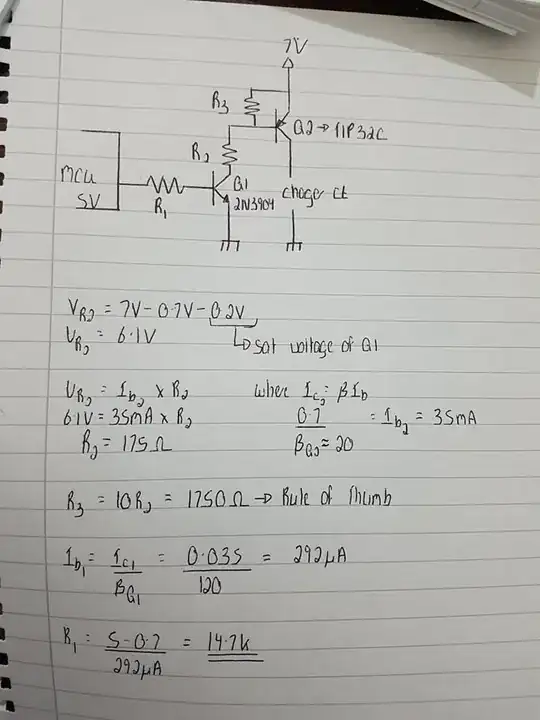 7V
R3
Q2 → TIP32C
R2
MCU
5V
R1
Q1
2N3904
Charge ct
VR2 = 7V - 0.7V - 0.2V
VR2 = 6.1V
↳ sat voltage of Q1
VR2 = Ib2 x R2 wher Ic2 = βIb
6.1V = 35mA x R2 0.7 / βQ2 ≈ 20 = Ib2 = 35mA
R2 = 175Ω
R3 = 10R2 = 1750Ω → Rule of Thumb
Ib1 = Ic1 / βQ1 = 0.035 / 120 = 292µA
R1 = 5-0.7 / 292µA = 14.7k